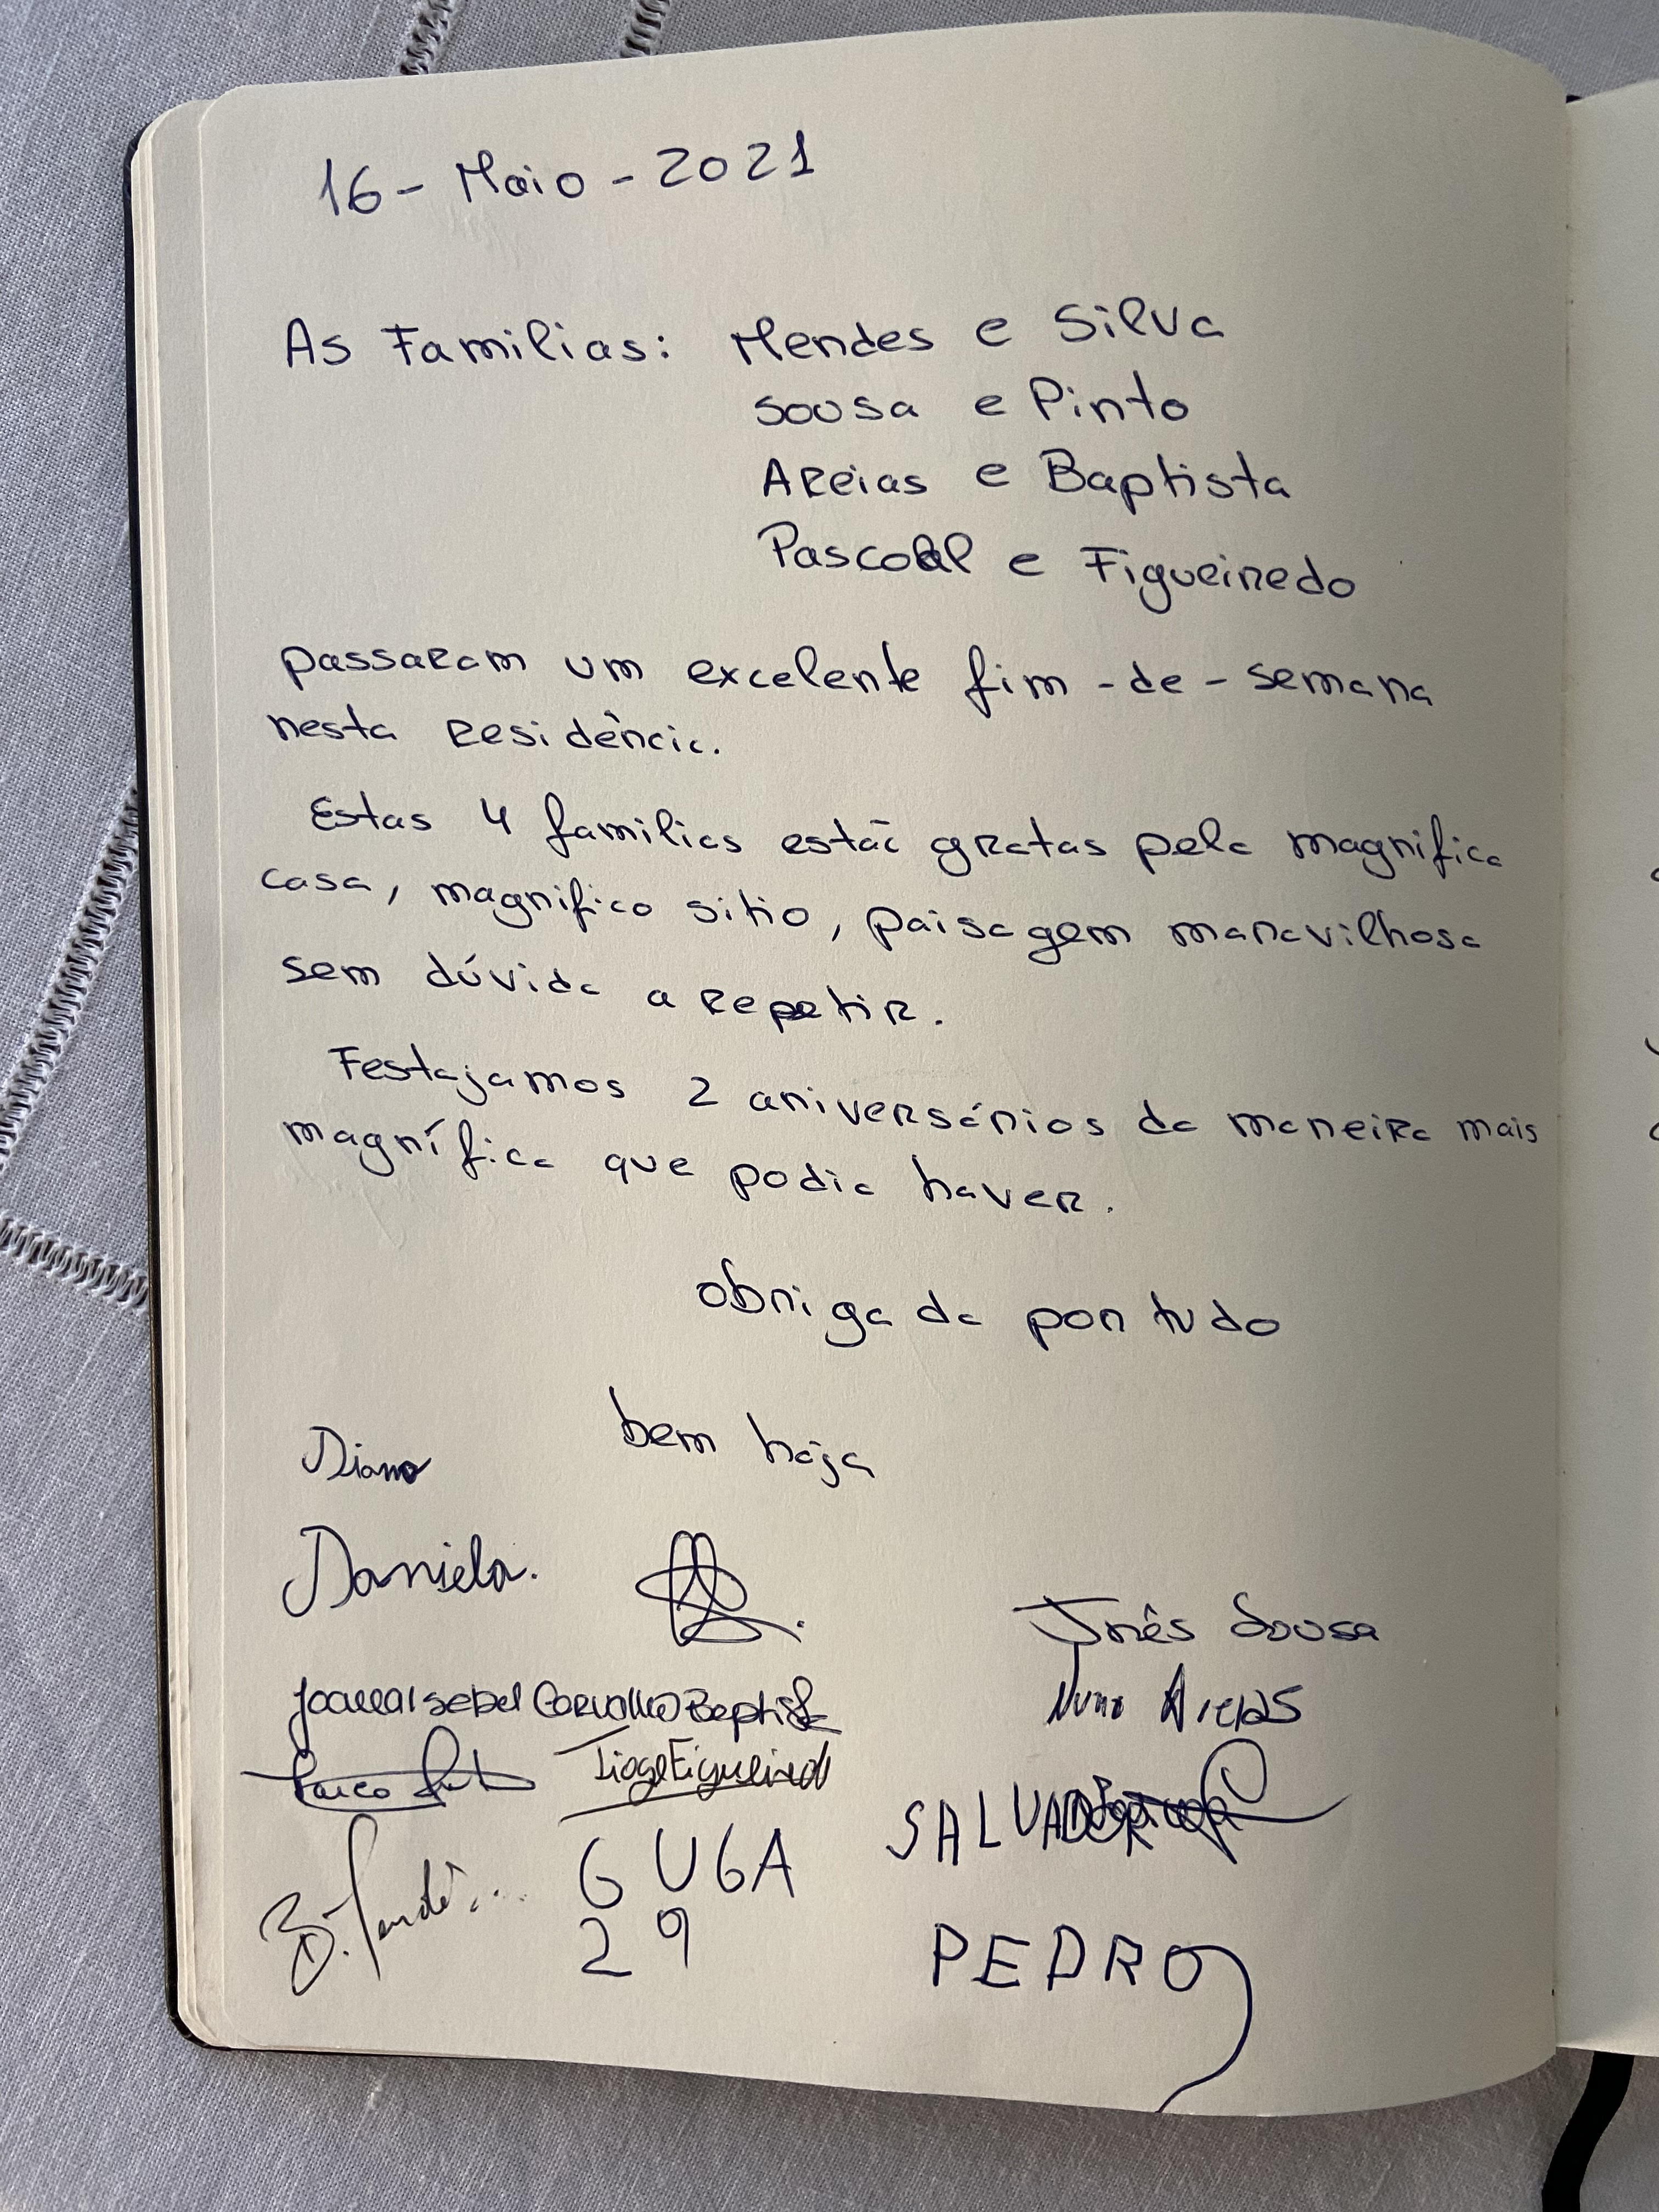 16 - Maio - 2021
As Familias: Mendes e Silva
Sousa e Pinto
Areias e Baptista
Pascoal e Figueiredo
passaram um excelente fim-de-semana
nesta residência.
Estas 4 familias estão gratas pela magnifica
casa, magnifico sitio, paisagem maravilhosa
sem dúvida a repetir.
Festejamos 2 aniversários da maneira mais
magnífica que podia haver.
obrigada por tudo
bem haja
Diana
Daniela.
Inês Sousa
Joana Isabel Carvalho Baptista
Nuno Areias
Tiago Figueiredo
SALVADOR
GUGA
29
PEDRO